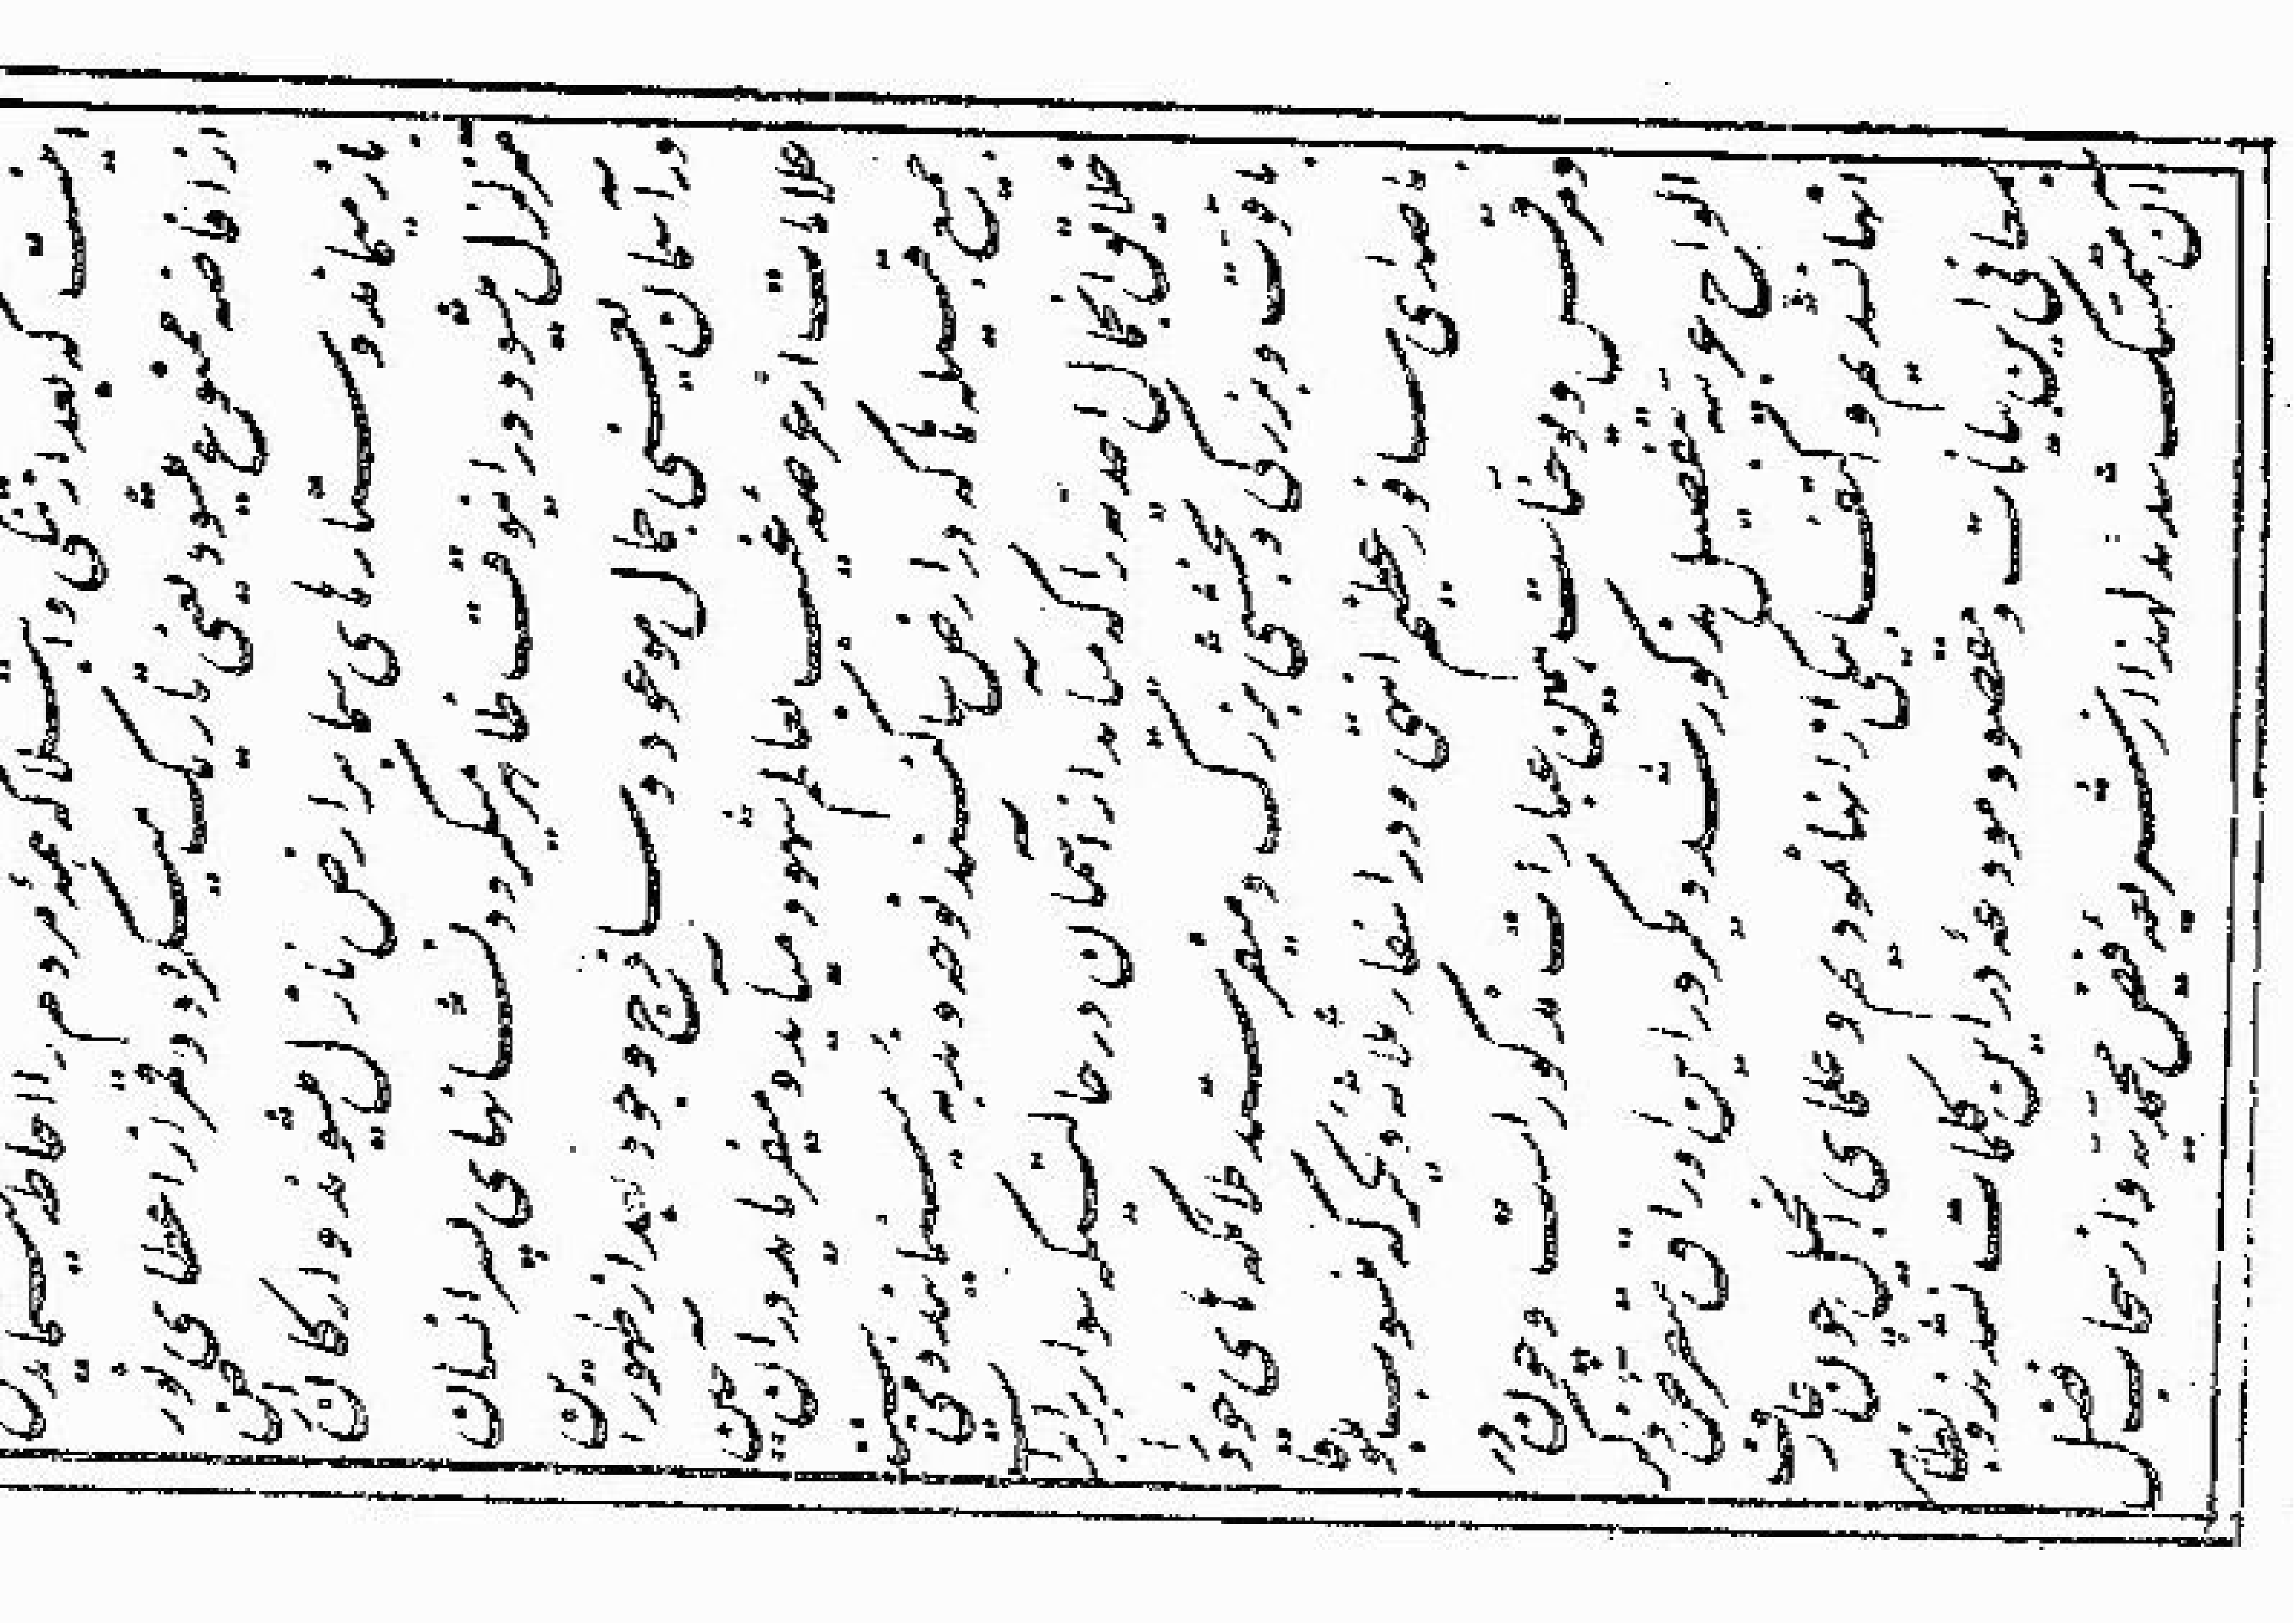 است که بعد از تنگی و ابتلا که همه مردم را احاطه مینماید شمس
از افاضه ممنوع میشود یعنی تاریک میگردد و قمر از اعطای نور
باز میماند و ستارهای سما بر ارض نازل میشوند و ارکان ارض
متزلزل میشود در انوقت ظاهر میگردد نشانهای پسر انسان
در آسمان یعنی جمال موعود و ساذج وجود بعد از ظهور این
علامات از عرصه غیب بعالم شهود میآید و میفرماید در ان حین
جمیع قبیلها که در ارض ساکنند نوحه و ندبه مینمایند و می بینند
خلایق آن جمال احدیه را که میاید از آسمان در حالتیکه سوار بر ابر است
با قوت و بزرگی و بخششی بزرگ و میفرستد ملائکهای خود را
با صدای سافور عظیم انتهی و در اسفار ثلاثه دیگر که منسوب بلوقا
و مرقس و یوحنا است همین عبارات مذکور است و چون در
الواح عربیه بتفصیل مذکور شد دیگر در این اوراق متعرض ذکر
انها نشدیم و اکتفا بیکی از انها نمودیم و علمای انجیل چون عارف
بمعانی این بیانات و مقصود مودعه در این کلمات نشدند و بظاهر
ان متمسک شدند لهذا از شریعه فیض محمدیه و از سحاب فضل